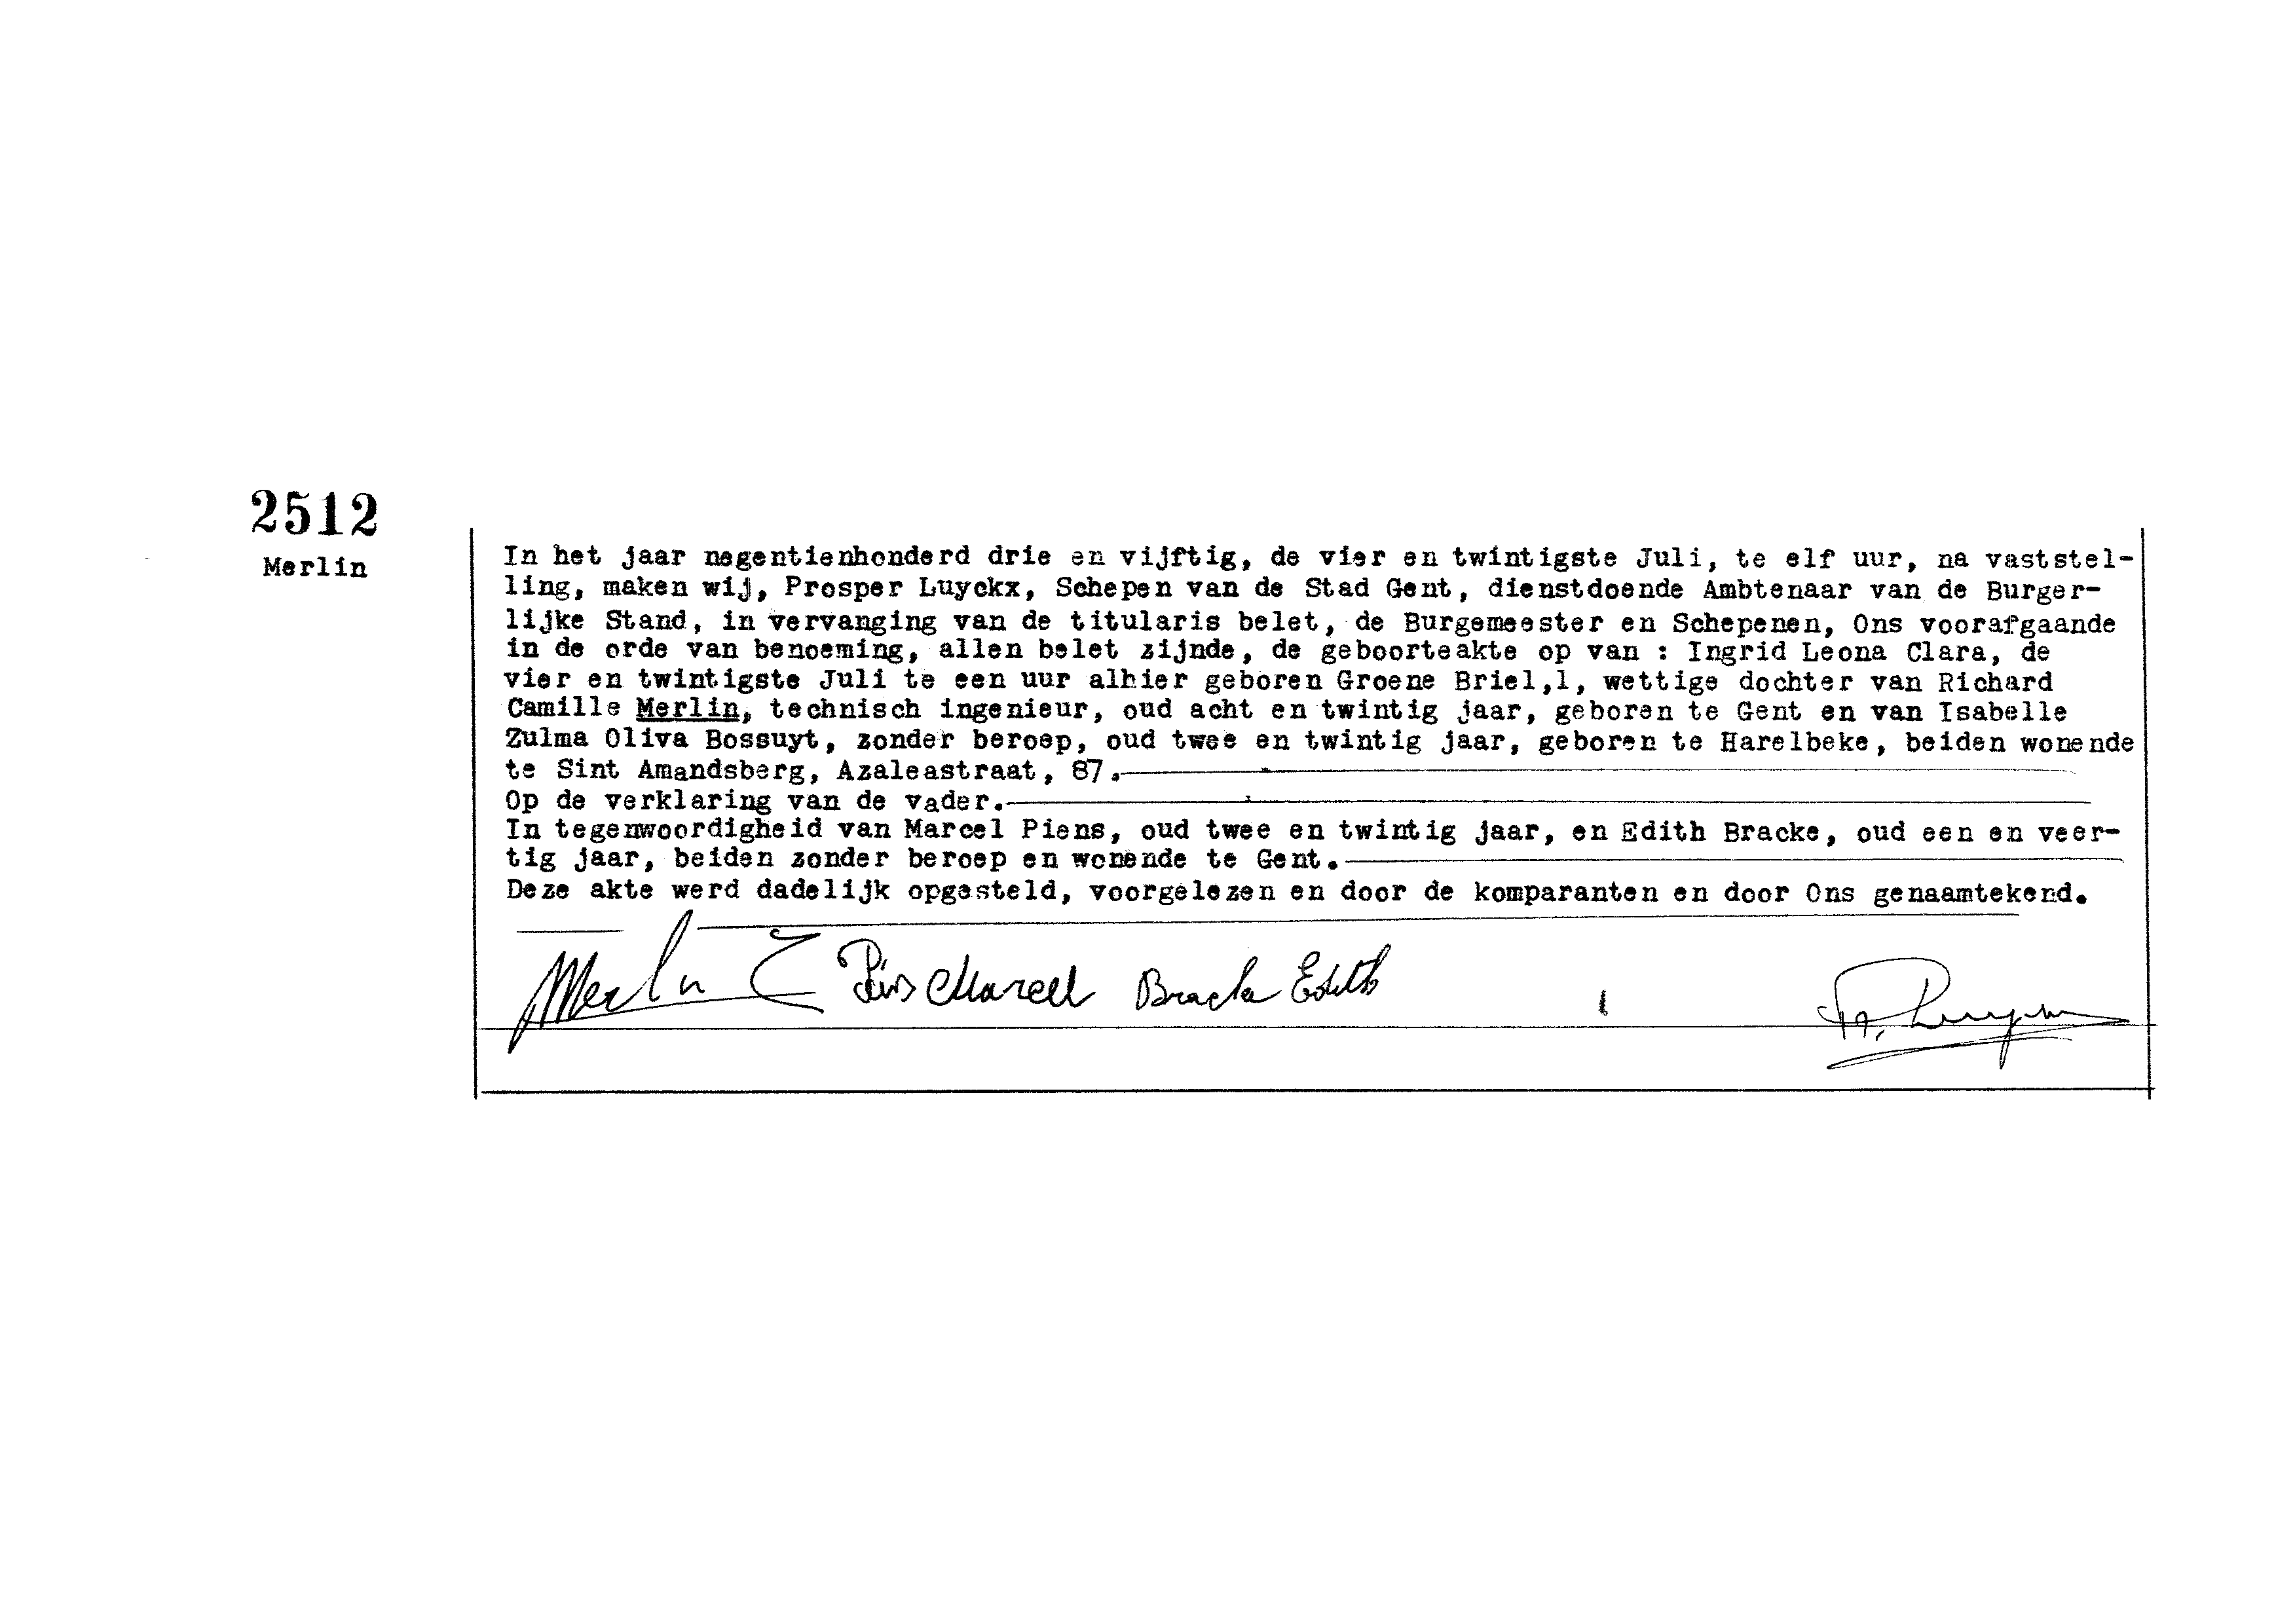 2512
Merlin
In het jaar negentienhonderd drie en vijftig, de vier en twintigste Juli, te elf uur, na vaststel-
ling, maken wij, Prosper Luyckx, Schepen van de Stad Gent, dienstdoende Ambtenaar van de Burger-
lijke Stand, in vervanging van de titularis belet, de Burgemeester en Schepenen, Ons voorafgaande
in de orde van benoeming, allen belet zijnde, de geboorteakte op van : Ingrid Leona Clara, de
vier en twintigste Juli te een uur alhier geboren Groene Briel,1, wettige dochter van Richard
Camille Merlin, technisch ingenieur, oud acht en twintig jaar, geboren te Gent en van Isabelle
Zulma Oliva Bossuyt, zonder beroep, oud twee en twintig jaar, geboren te Harelbeke, beiden wonende
te Sint Amandsberg, Azaleastraat, 87.
Op de verklaring van de vader.
In tegenwoordigheid van Marcel Piens, oud twee en twintig jaar, en Edith Bracke, oud een en veer-
tig jaar, beiden zonder beroep en wonende te Gent.
Deze akte werd dadelijk opgesteld, voorgelezen en door de komparanten en door Ons genaamtekend.
Merlin Piens Marcel Bracke Edith